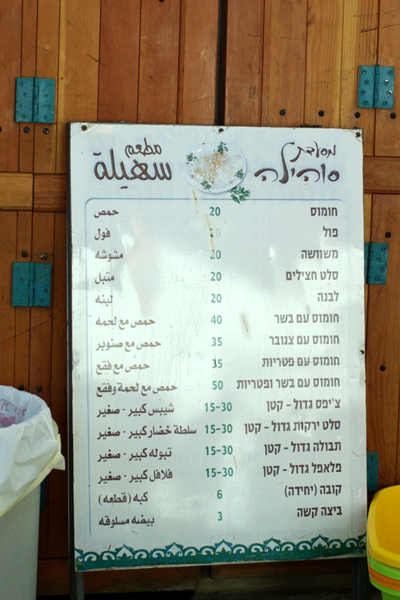 مطعم سهيلة מסעדת סוהילה
حمص 20 חומוס
فول 20 פול
مشوشه 20 משוושה
متبل 20 סלט חצילים
لبنه 20 לבנה
حمص مع لحمه 40 חומוס עם בשר
حمص مع صنوبر 35 חומוס עם צנובר
حمص مع فقع 35 חומוס עם פטריות
حمص مع لحمة وفقع 50 חומוס עם בשר ופטריות
شيبس كبير - صغير 15-30 צ'יפס גדול - קטן
سلطة خضار كبير - صغير 15-30 סלט ירקות גדול - קטן
تبوله كبير - صغير 15-30 תבולה גדול - קטן
فلافل كبير - صغير 15-30 פלאפל גדול - קטן
كبه (قطعه) 6 קובה (יחידה)
بيضه مسلوقه 3 ביצה קשה